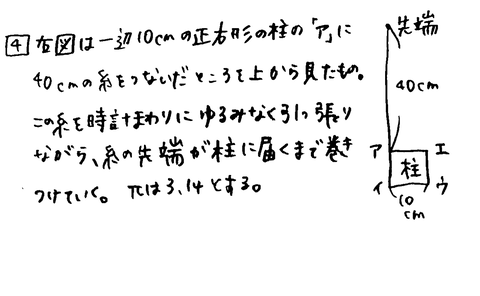 4 右図は一辺10cmの正方形の柱の「ア」に
40cmの糸をつないだところを上から見たもの。
この糸を時計まわりにゆるみなく引っ張り
ながら、糸の先端が柱に届くまで巻き
つけていく。πは3.14とする。
先端
40cm
ア エ
柱
イ ウ
10
cm